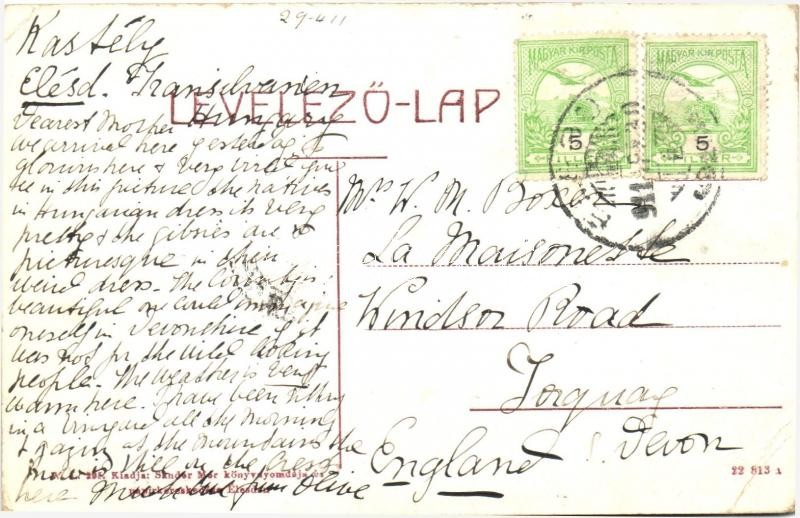 29-4 11
Kastély
Elésd. Transilvanien
Hungary
LEVELEZŐ-LAP
MAGYAR KIR. POSTA
5
FILLÉR
MAGYAR KIR. POSTA
5
FILLÉR
911
Dearest Mother
we arrived here yesterday
glorious here & very
see in this picture the natives
in Hungarian dress its very
pretty & the gipsies are so
picturesque in their
weird dress. The Country is
beautiful one could imagine
oneself in Devonshire if it
was not for the wild looking
people. The weather is very
warm here. I have been sitting
in a vineyard all the morning
& gazing at the mountains the
here Much love from Olive
Mrs W. M. Boxer
La Maisonette
Windsor Road
Torquay
Devon
England
Kiadja: Sándor Mór könyvnyomdája és
papirkereskedése Élesden
22 813 A